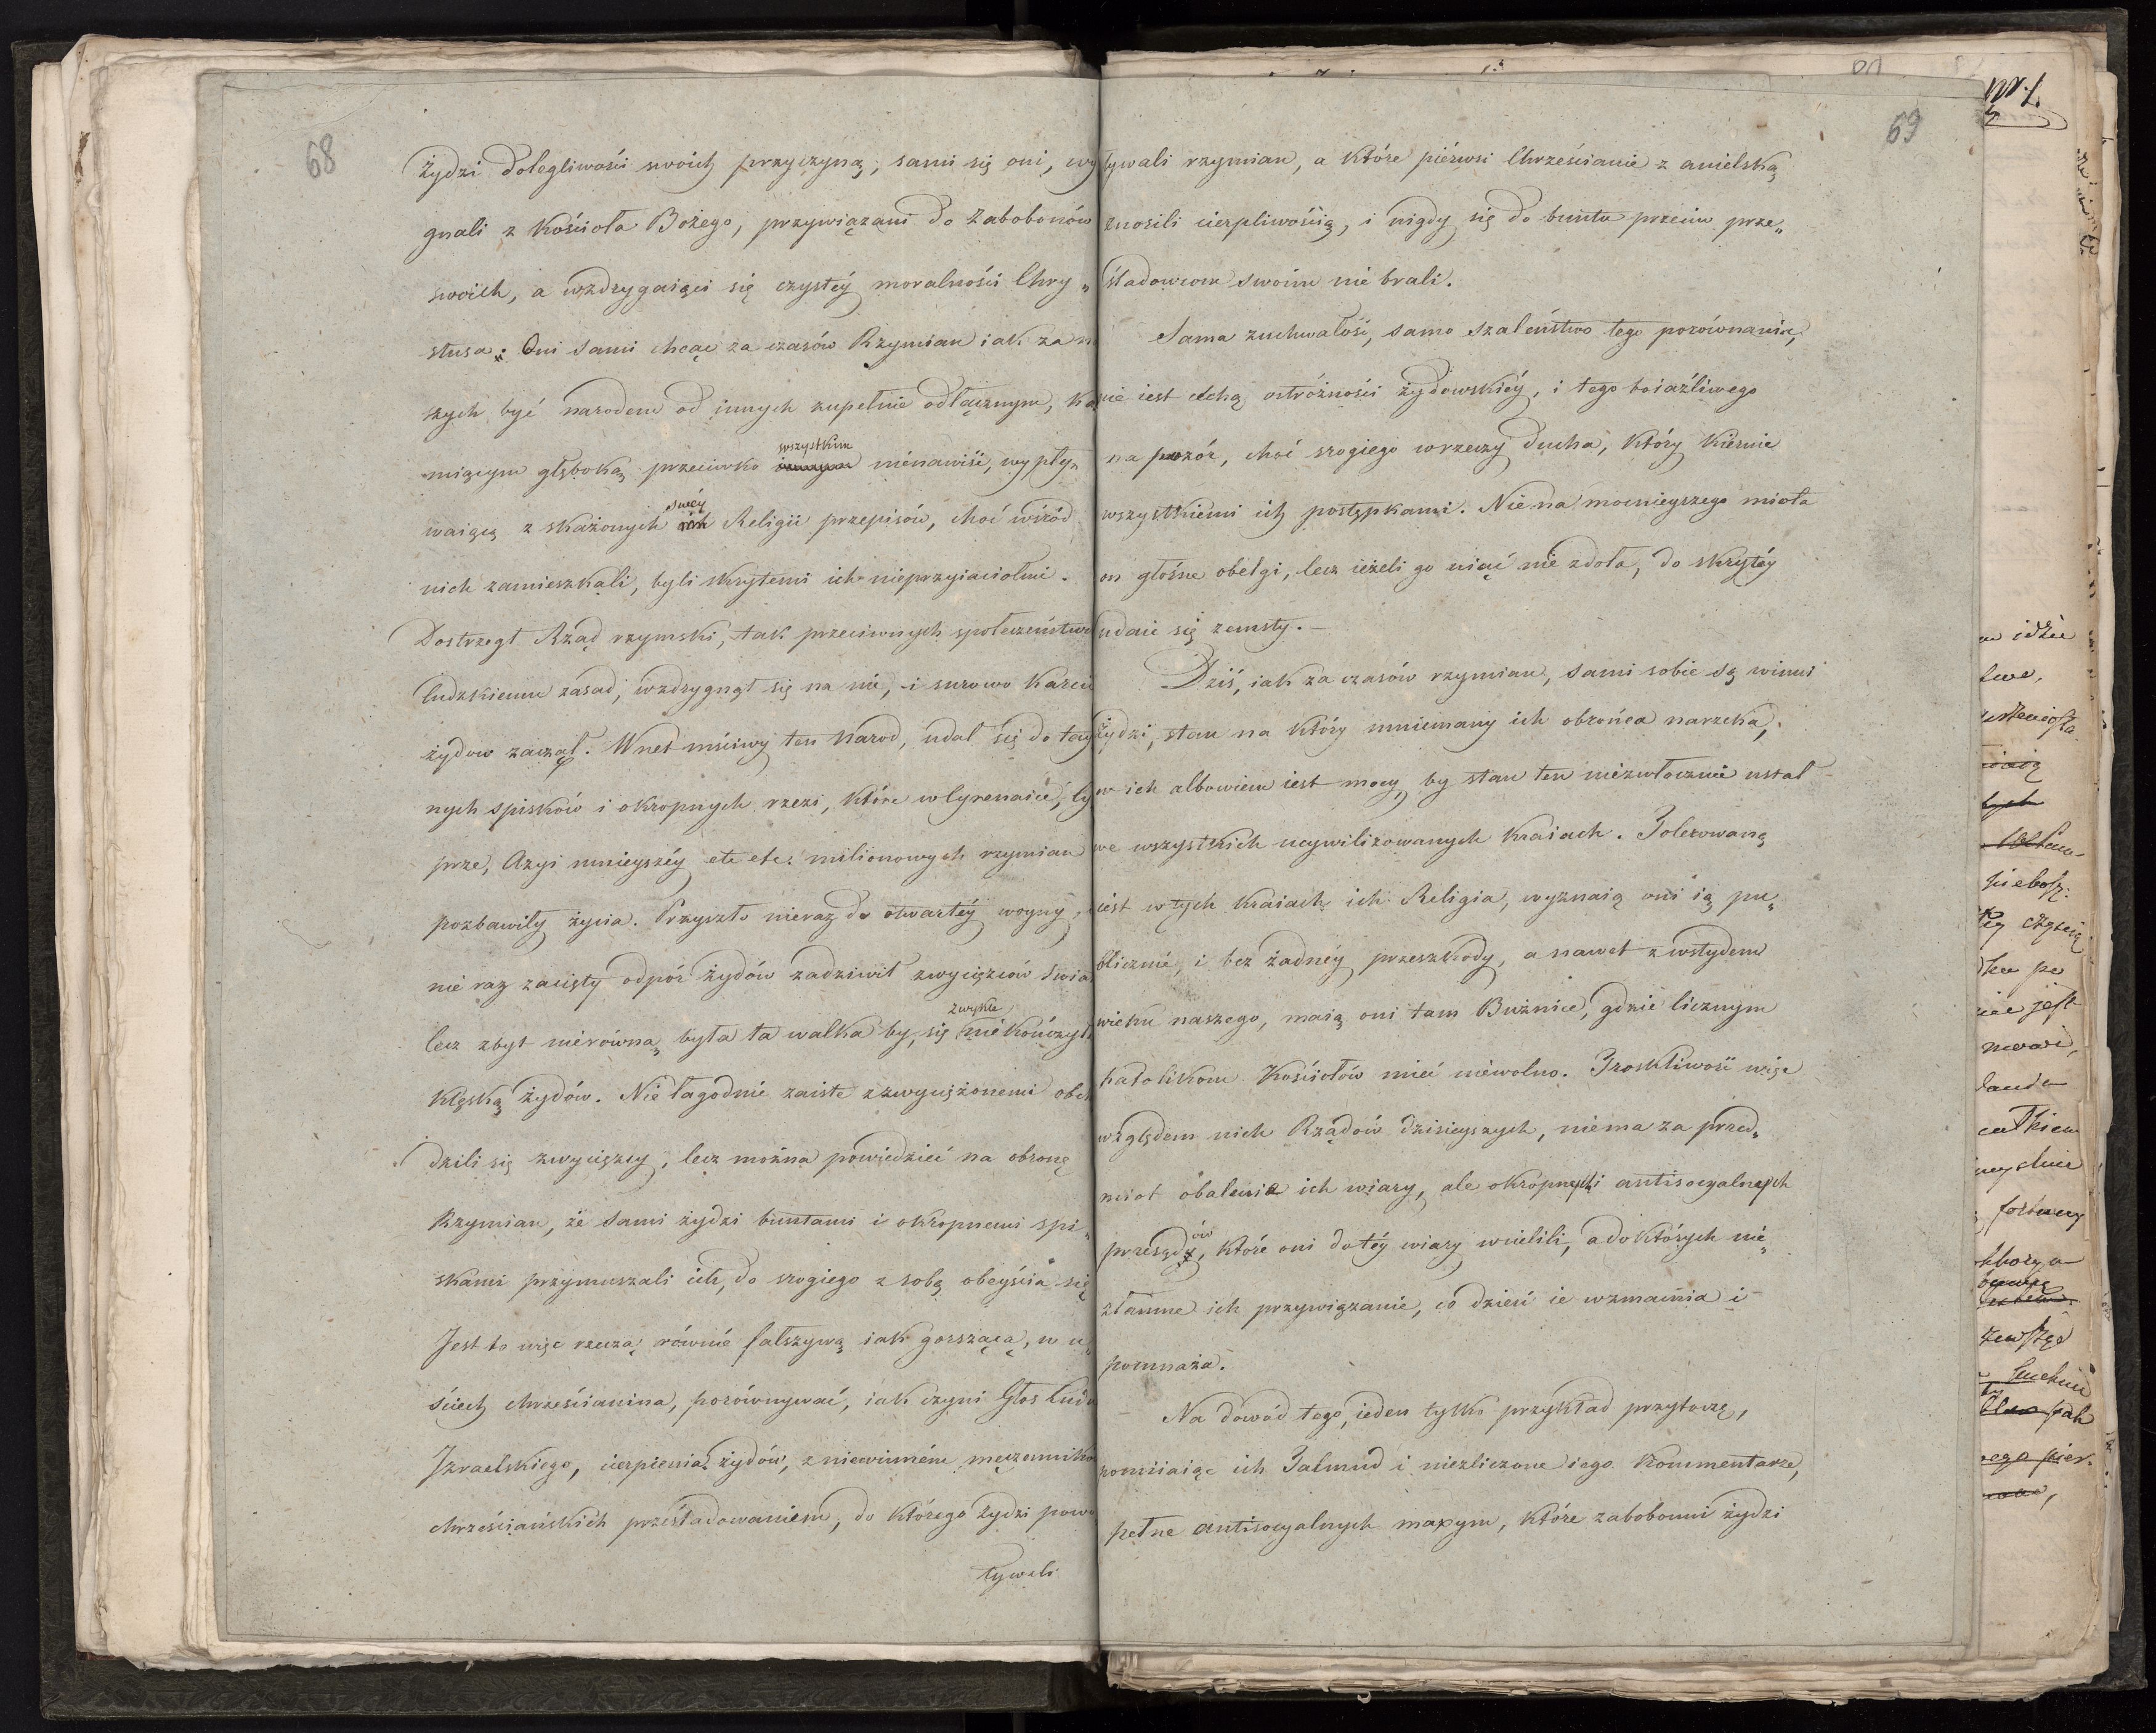 68
Żydzi dolegliwości swoich przyczyną; sami się oni, wy
gnali z Kościoła Bożego, przywiązani do Zabobonów
swoich, a wzdrygaiąci się czystéy moralności Chry„
stusa. Oni sami chcąc za czasów Rzymian iak za n
szych być narodem od innych zupełnie odłącznym, ka
wszystkim
miącym głęboką przeciwko innym niénawiść, wypły„
swéy
waiącą z skażonych ich Religii przepisów, choć wśród
nich zamieszkali, byli skrytemi ich nieprzyiaciołmi.
Dostrzegł Rząd rzymski, tak przeciwnych społeczeństwu
ludzkiemu zasad, wzdrygnął się na nié, i surowo karcić
żydow zaczął. Wnet mściwy ten Naród, udał się do tay
nych spisków i okropnych rzezi, które w Cyrenaice, Cy
prze, Azyi mnieyszéy etc etc. milionowych rzymian
pozbawiły życia. Przyszło nieraz do otwartéy woyny,
nié raz zacięty odpór żydów zadziwił zwycięzców świa
zwykle
lecz zbyt niérówną była ta walka by, się nié kończyła
klęską żydów. Nié łagodnié zaiste z zwyciężonemi obch
dzili się zwycięzcy, lecz można powiedzieć na obronę
Rzymian, że sami żydzi buntami i okropnemi spi„
skami przymuszali ich, do srogiego z sobą obeyścia się
Jest to więc rzeczą równié fałszywą iak gorszącą, w u„
ściech chrześcianina, porównywać, iak czyni Głos Ludu
Izraelskiego, cierpienia żydów, z niewinném męczennikó
chrześciańskich prześladowaniem, do którego żydzi powo
ływali
69
ływali rzymian, a które piérwsi Chrześcianie z anielską
znosili cierpliwością, i nigdy się do buntu przeciw prze„
śladowcom swoim nié brali.
Sama zuchwałość, samo szaleństwo tego porównania,
nié iest cechą ostróżności żydowskiéy, i tego boiaźliwego
na pozór, choć srogiego w rzeczy ducha, który kiéruie
wszystkiemi ich postępkami. Nié na mocnieyszego miota
on głośne obelgi, lecz ieżeli go uiąć nié zdoła, do skrytéy
udaie się zemsty.—
Dziś, iak za czasów rzymian, sami sobie są winni
żydzi, stan na który mniemany ich obrońca narzeka;
w ich albowiem iest mocy, by stan ten niézwłocznié ustał
we wszystkich ucywilizowanych kraiach. Tolerowaną
iest w tych kraiach ich Religia, wyznaią oni ią pu„
blicznié, i bez żadnéy przeszkody, a nawet z wstydem
wieku naszego, maią oni tam Bużnice, gdzie licznym
katolikom Kościołów mieć niéwolno. Troskliwość więc
względem nich Rządów dzisieyszych, niéma za przed„
miot obalenia ich wiary, ale okropnych i antisocyalnych
ów
przesądy, które oni do téy wiary wcielili, a do których nié„
złamne ich przywiązanie, co dzień ie wzmacnia i
pomnaża.
Na dowód tego, ieden tylko przykład przytoczę,
pomiiaiąc ich Talmud i niezliczone iego Kommentarze,
pełne antisocyalnych maxym, które zabobonni żydzi